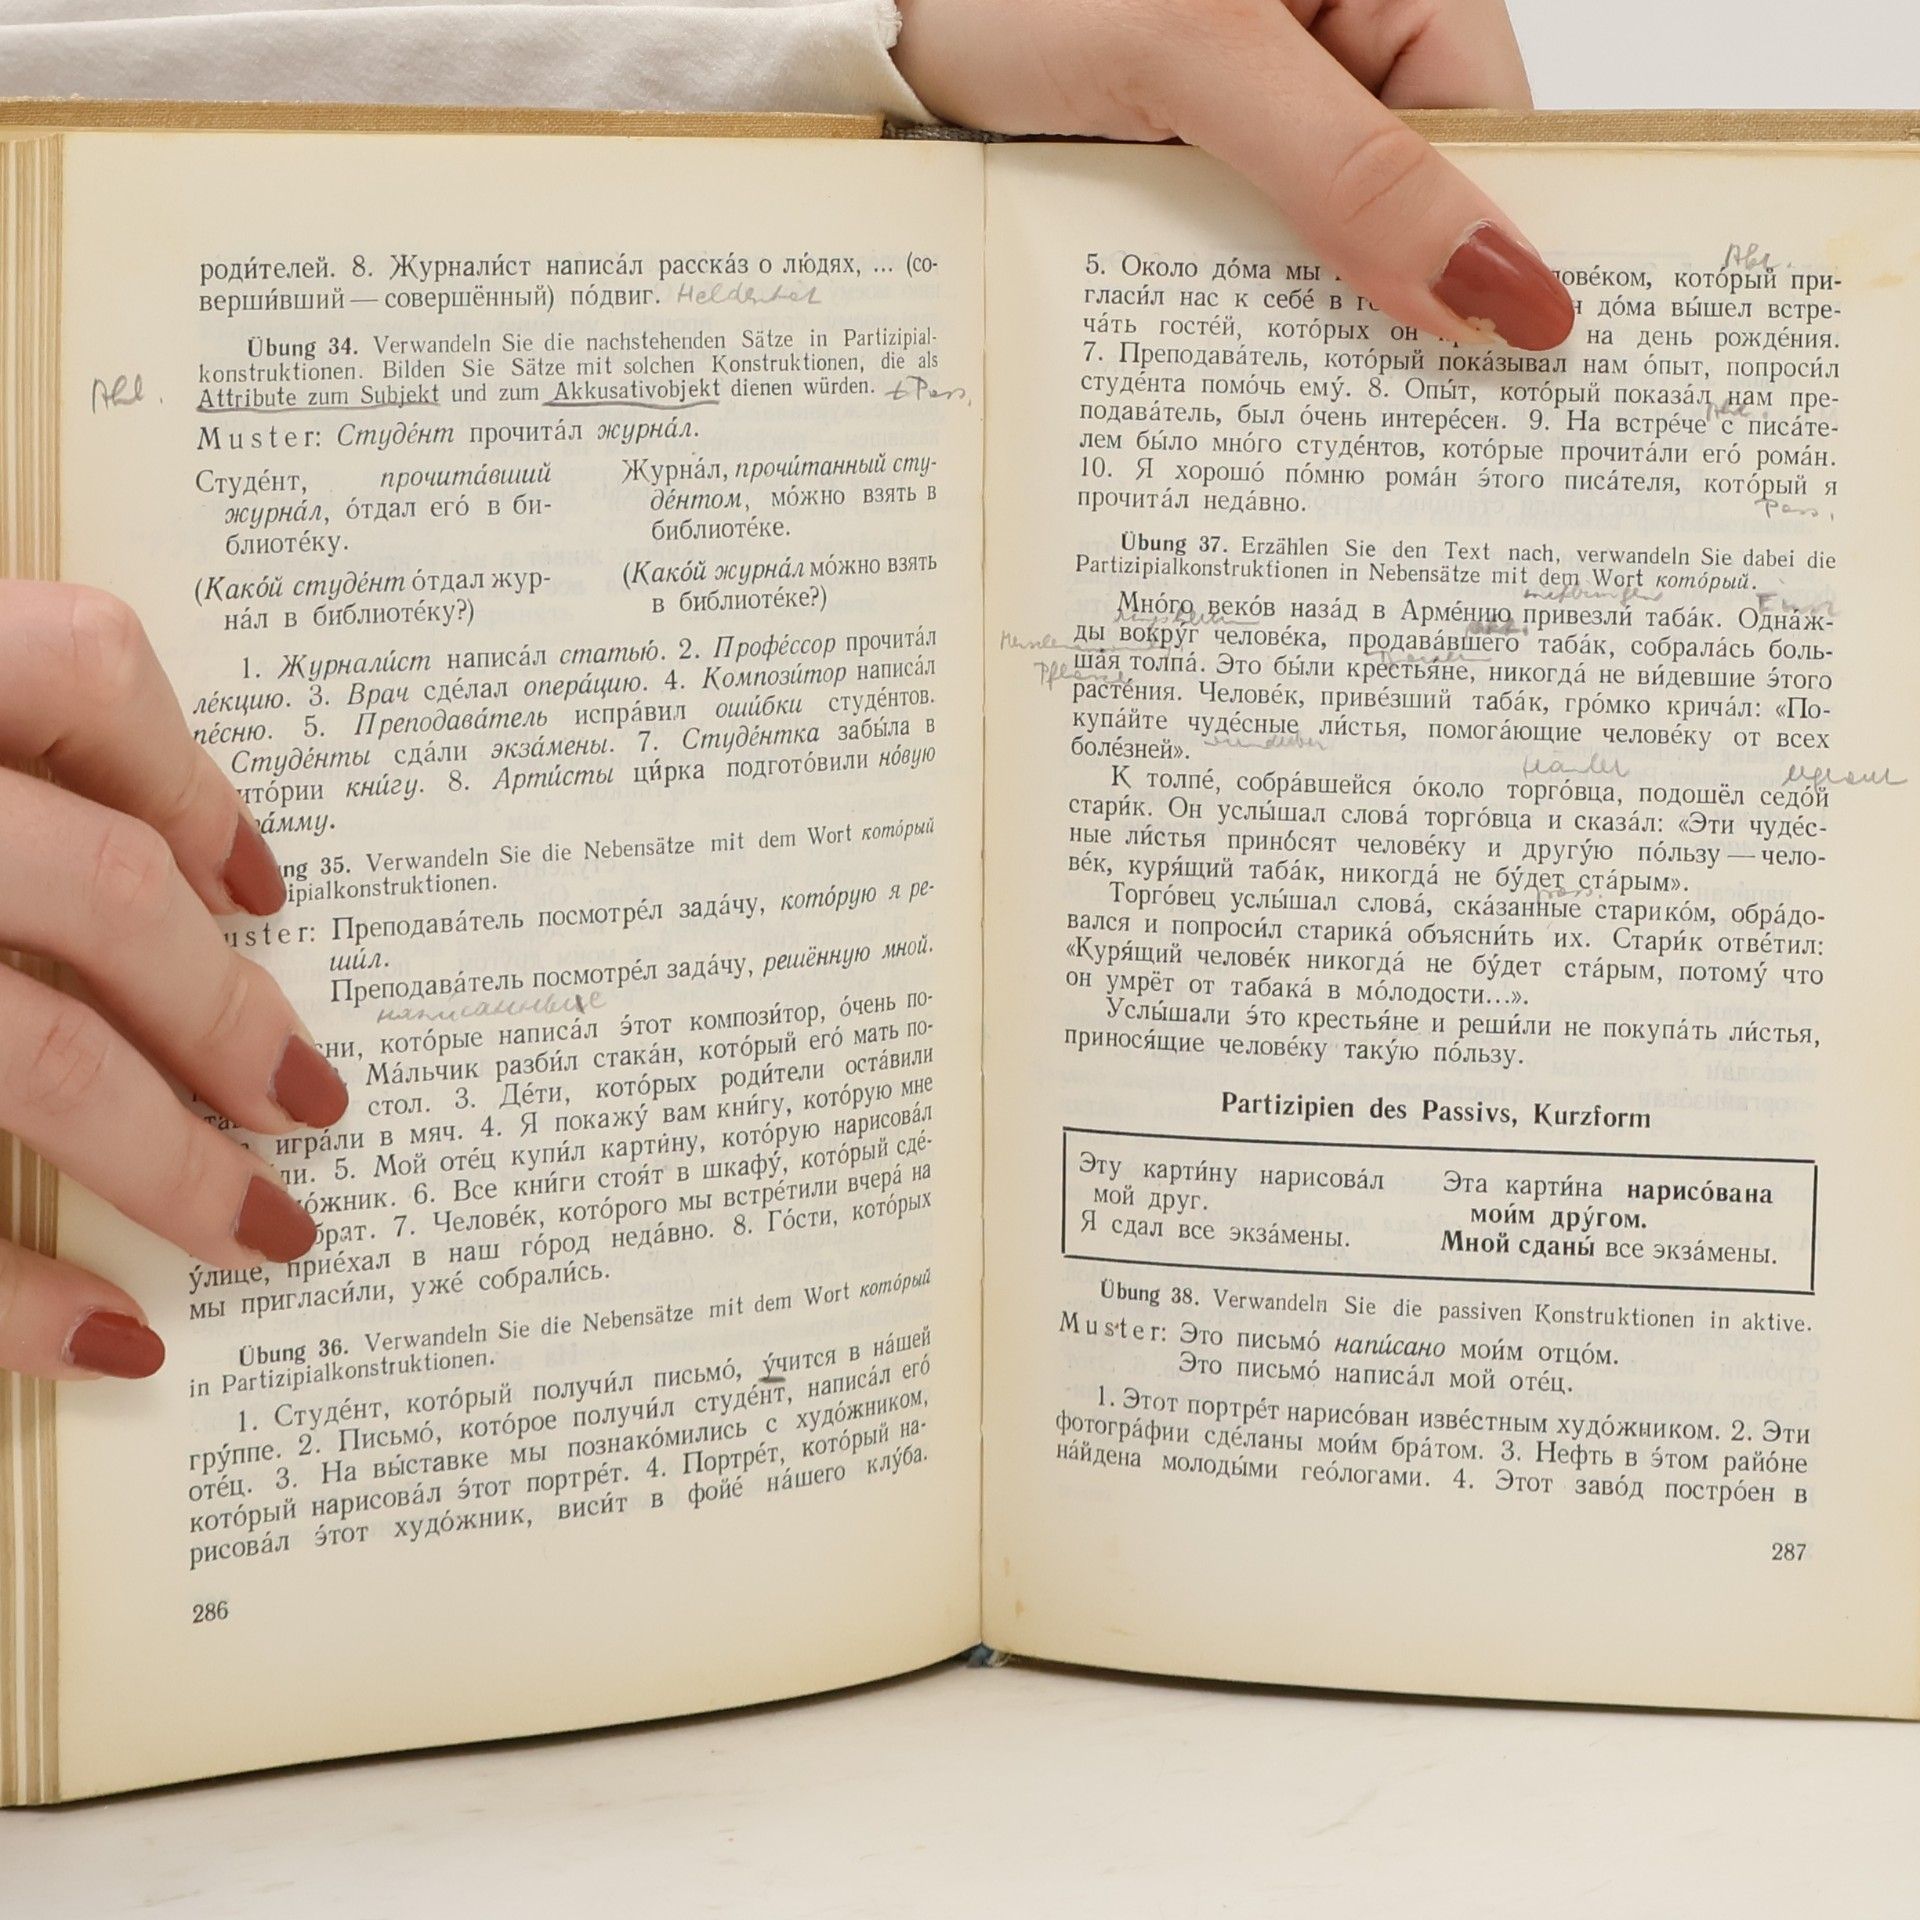 роди́телей. 8. Журнали́ст написа́л расска́з о лю́дях, ... (со-
верши́вший — совершённый) по́двиг. Heldentat
Übung 34. Verwandeln Sie die nachstehenden Sätze in Partizipial-
konstruktionen. Bilden Sie Sätze mit solchen Konstruktionen, die als
Attribute zum Subjekt und zum Akkusativobjekt dienen würden.
Muster: Студе́нт прочита́л журна́л.
Студе́нт, прочита́вший
журна́л, о́тдал его́ в би-
блиоте́ку.
(Како́й студе́нт о́тдал жур-
на́л в библиоте́ку?)
Журна́л, прочи́танный сту-
де́нтом, мо́жно взять в
библиоте́ке.
(Како́й журна́л мо́жно взять
в библиоте́ке?)
1. Журнали́ст написа́л статью́. 2. Профе́ссор прочита́л
ле́кцию. 3. Врач сде́лал опера́цию. 4. Компози́тор написа́л
пе́сню. 5. Преподава́тель испра́вил оши́бки студе́нтов.
Студе́нты сда́ли экза́мены. 7. Студе́нтка забы́ла в
ито́рии кни́гу. 8. Арти́сты ци́рка подгото́вили но́вую
ра́мму.
ng 35. Verwandeln Sie die Nebensätze mit dem Wort кото́рый
ipialkonstruktionen.
uster: Преподава́тель посмотре́л зада́чу, кото́рую я ре-
ши́л.
Преподава́тель посмотре́л зада́чу, решённую мной.
написанные
сни, кото́рые написа́л э́тот компози́тор, о́чень по-
Ма́льчик разби́л стака́н, кото́рый его́ мать по-
стол. 3. Де́ти, кото́рых роди́тели оста́вили
игра́ли в мяч. 4. Я покажу́ вам кни́гу, кото́рую мне
ли. 5. Мой оте́ц купи́л карти́ну, кото́рую нарисова́л
о́жник. 6. Все кни́ги стоя́т в шкафу́, кото́рый сде́-
брат. 7. Челове́к, кото́рого мы встре́тили вчера́ на
у́лице, прие́хал в наш го́род неда́вно. 8. Го́сти, кото́рых
мы пригласи́ли, уже́ собрали́сь.
Übung 36. Verwandeln Sie die Nebensätze mit dem Wort кото́рый
in Partizipialkonstruktionen.
1. Студе́нт, кото́рый получи́л письмо́, у́чится в на́шей
гру́ппе. 2. Письмо́, кото́рое получи́л студе́нт, написа́л его́
оте́ц. 3. На вы́ставке мы познако́мились с худо́жником,
кото́рый нарисова́л э́тот портре́т. 4. Портре́т, кото́рый на-
рисова́л э́тот худо́жник, виси́т в фойе́ на́шего клу́ба.
286
5. Около до́ма мы ловеком, кото́рый при-
гласи́л нас к себе́ в н до́ма вы́шел встре-
ча́ть госте́й, кото́рых он на день рожде́ния.
7. Преподава́тель, кото́рый пока́зывал нам о́пыт, попроси́л
студе́нта помо́чь ему́. 8. Опы́т, кото́рый показа́л нам пре-
подава́тель, был о́чень интере́сен. 9. На встре́че с писа́те-
лем бы́ло мно́го студе́нтов, кото́рые прочита́ли его́ рома́н.
10. Я хорошо́ по́мню рома́н э́того писа́теля, кото́рый я
прочита́л неда́вно.
Pass.
Übung 37. Erzählen Sie den Text nach, verwandeln Sie dabei die
Partizipialkonstruktionen in Nebensätze mit dem Wort кото́рый.
Мно́го веко́в наза́д в Арме́нию привезли́ таба́к. Одна́ж-
ды вокру́г челове́ка, продава́вшего таба́к, собрала́сь боль-
ша́я толпа́. Это бы́ли крестья́не, никогда́ не ви́девшие э́того
расте́ния. Челове́к, приве́зший таба́к, гро́мко крича́л: «По-
купа́йте чуде́сные ли́стья, помога́ющие челове́ку от всех
боле́зней».
К толпе́, собра́вшейся о́коло торго́вца, подошёл седо́й
стари́к. Он услы́шал слова́ торго́вца и сказа́л: «Эти чуде́с-
ные ли́стья прино́сят челове́ку и другу́ю по́льзу — чело-
ве́к, куря́щий таба́к, никогда́ не бу́дет ста́рым».
Торго́вец услы́шал слова́, ска́занные старико́м, обра́до-
вался и попроси́л старика́ объясни́ть их. Стари́к отве́тил:
«Куря́щий челове́к никогда́ не бу́дет ста́рым, потому́ что
он умрёт от табака́ в мо́лодости...».
Услы́шали э́то крестья́не и реши́ли не покупа́ть ли́стья,
принося́щие челове́ку таку́ю по́льзу.
Partizipien des Passivs, Kurzform
Эту карти́ну нарисова́л
мой друг.
Я сдал все экза́мены.
Эта карти́на нарисо́вана
мои́м дру́гом.
Мной сданы́ все экза́мены.
Übung 38. Verwandeln Sie die passiven Konstruktionen in aktive.
Muster: Это письмо́ напи́сано мои́м отцо́м.
Это письмо́ написа́л мой оте́ц.
1. Этот портре́т нарисо́ван изве́стным худо́жником. 2. Эти
фотогра́фии сде́ланы мои́м бра́том. 3. Нефть в э́том райо́не
на́йдена молоды́ми гео́логами. 4. Этот заво́д постро́ен в
287